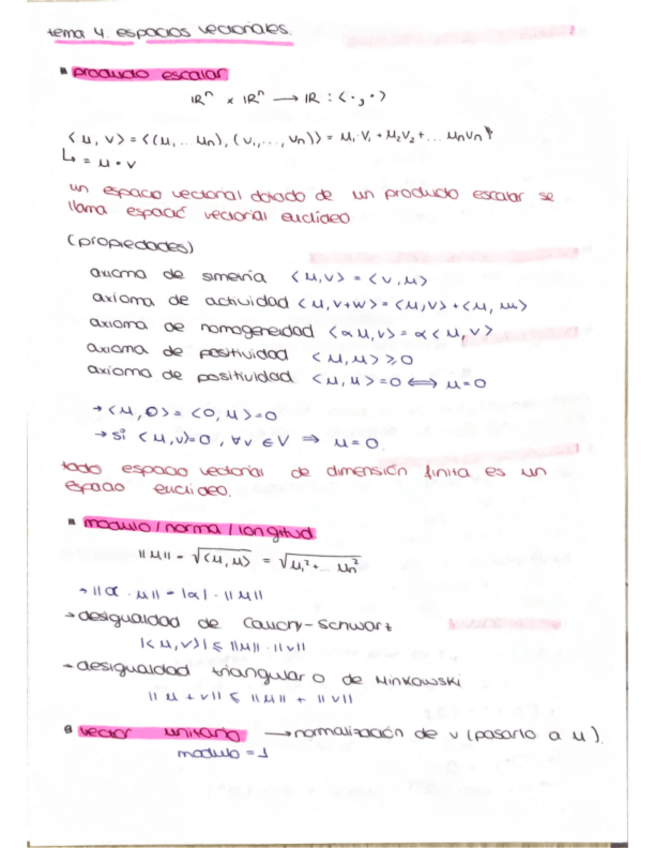 tema 4. espacios vectoriales.
producto escalar
ℝⁿ × ℝⁿ → ℝ : < · , · >
<u, v> = <(u, ... uₙ), (v₁, ..., vₙ)> = u₁·v₁ + u₂v₂ + ... uₙvₙ
↳ = u • v
un espacio vectorial dotado de un producto escalar se
llama espacio vectorial euclídeo
(propiedades)
axioma de simetría <u,v> = <v,u>
axioma de actividad <u, v+w> = <u,v> + <u, w>
axioma de homogeneidad <αu,v> = α<u,v>
axioma de positividad <u,u> ≥ 0
axioma de positividad <u,u> = 0 ⟺ u=0
→ <u,0> = <0,u> = 0
→ si <u,v>=0, ∀v ∈ V ⇒ u=0
todo espacio vectorial de dimensión finita es un
espacio euclideo.
modulo / norma / longitud
||u|| = √<u,u> = √u₁² + ... uₙ²
→ ||α · u|| = |α| · ||u||
→ desigualdad de Cauchy-Schwartz
|<u,v>| ≤ ||u|| · ||v||
→ desigualdad triangular o de Minkowski
||u + v|| ≤ ||u|| + ||v||
vector unitario → normalización de v (pasarlo a u).
modulo = 1